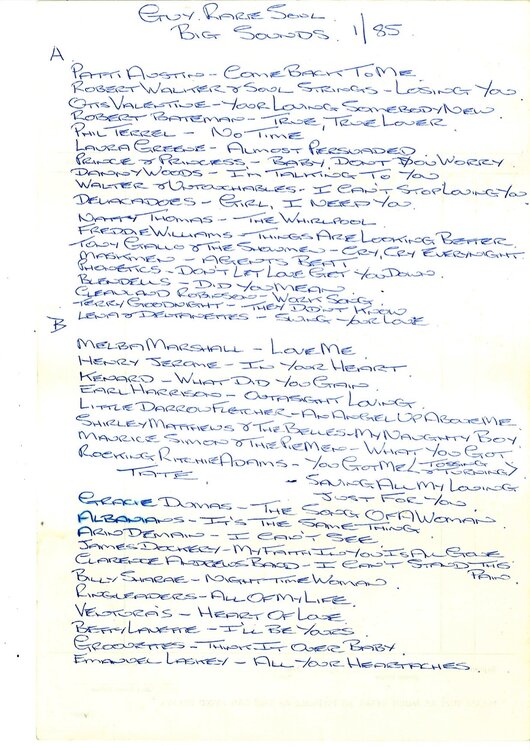 Guy. Rare Soul.
Big Sounds. 1/85
A.
Patti Austin - Come Back To Me.
Robert Walker & Soul Strings - Losing You.
Otis Valentine - Your Loving Somebody New.
Robert Bateman - True, True Lover.
Phil Terrel - No Time.
Laura Greene - Almost Persuaded
Prince & Princess - Baby, Don't You Worry.
Danny Woods - I'm Talking To You
Walter & Untouchables - I Can't Stop Loving You
Delacadoes - Girl, I Need You.
Natty Thomas - The Whirlpool.
Freddie Williams - Things Are Looking Better.
Tony Giallo & The Showmen - Cry, Cry Everynight.
Maskmen - Agents Beat.
Phonetics - Don't Let Love Get You Down.
Blendells - Did You Mean.
Cleanland Robinson - Work Song.
Terry Goodnight - They Didn't Know
Lena & Deltanettes - Swing - Your Love
B
Melba Marshall - Love Me.
Henry Jerome - In Your Heart
Kenard - What Did You Gain.
Earl Harrison - Outasight Loving.
Little Darrow Fletcher - An Angel Up Above Me.
Shirley Matthews & The Belles - My Naughty Boy
Maurice Simon & The Pie Men - What You Got
Rocking Ritchie Adams - You Got Me (Tossing & Turning)
Tiate. - Saving All My Loving
Just For You.
Gracie Dumas - The Song Of A Woman
Albanians - It's The Same Thing
Arin Demain - I Can't See.
James Dockery - My Faith In You Is All Gone
Clarence Andrews Band - I Can't Stand This Pain.
Billy Sharae - Night Time Woman.
Ringleaders - All Of My Life.
Ventura's - Heart Of Love.
Betty Lavette - I'll Be Yours.
Groovettes - Think It Over Baby.
Emanuel Laskey - All Your Heartaches.